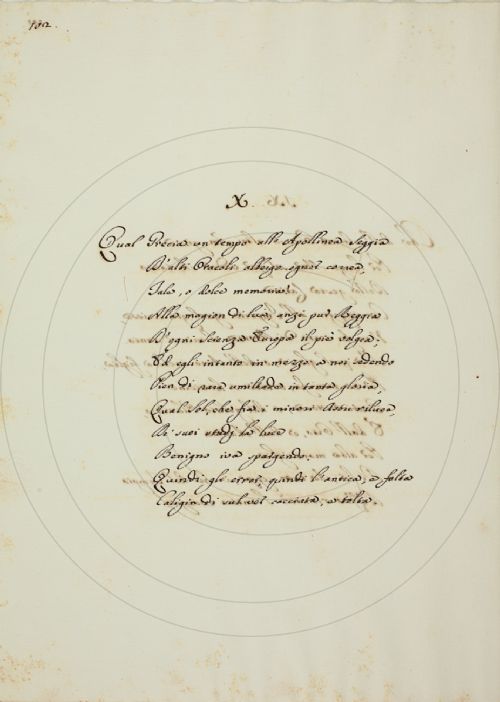 102
X
Qual Grecia un tempo alle Apollinea Seggia
D'alti Oracoli albergo ognor correa,
Tale, o dolce memoria!
Alla magion di lui, anzi pur Reggia
D'ogni scienza Europa il piè volgea:
Ed egli intanto in mezzo a noi sedendo
Pien di rara umiltade in tanta gloria
Qual Sol, che fra i minori Astri riluca,
De' suoi studj la luce
Benigno iva spargendo:
Quindi gli error, quindi l'antica, e folta
Caligin di subiet cacciata, e tolta.